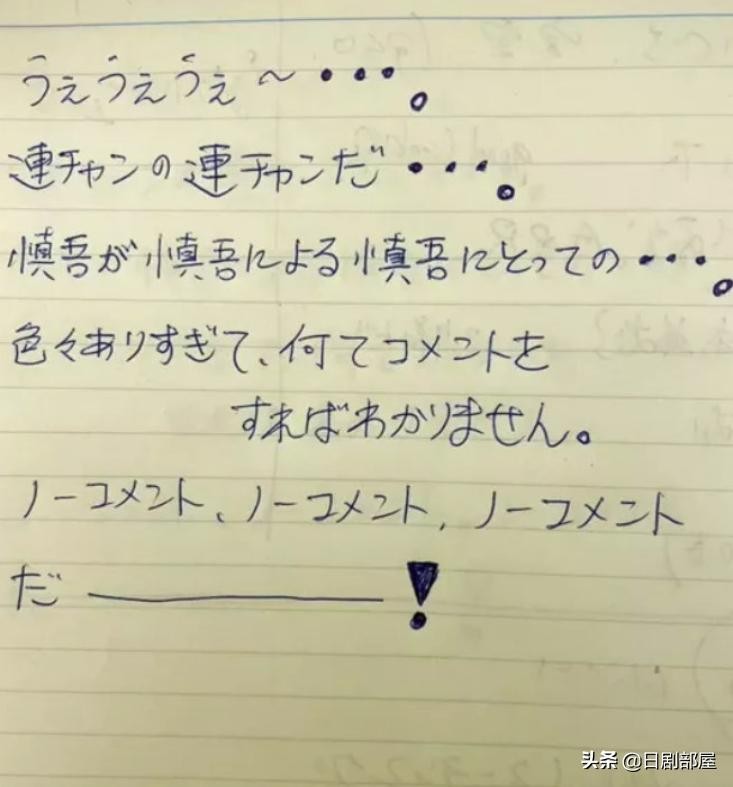 うえうえうえ～・・・。
連チャンの連チャンだ・・・。
慎吾が慎吾による慎吾にとっての・・・。
色々ありすぎて、何てコメントを
すればわかりません。
ノーコメント、ノーコメント、ノーコメント
だ――――!
头条 @日剧部屋